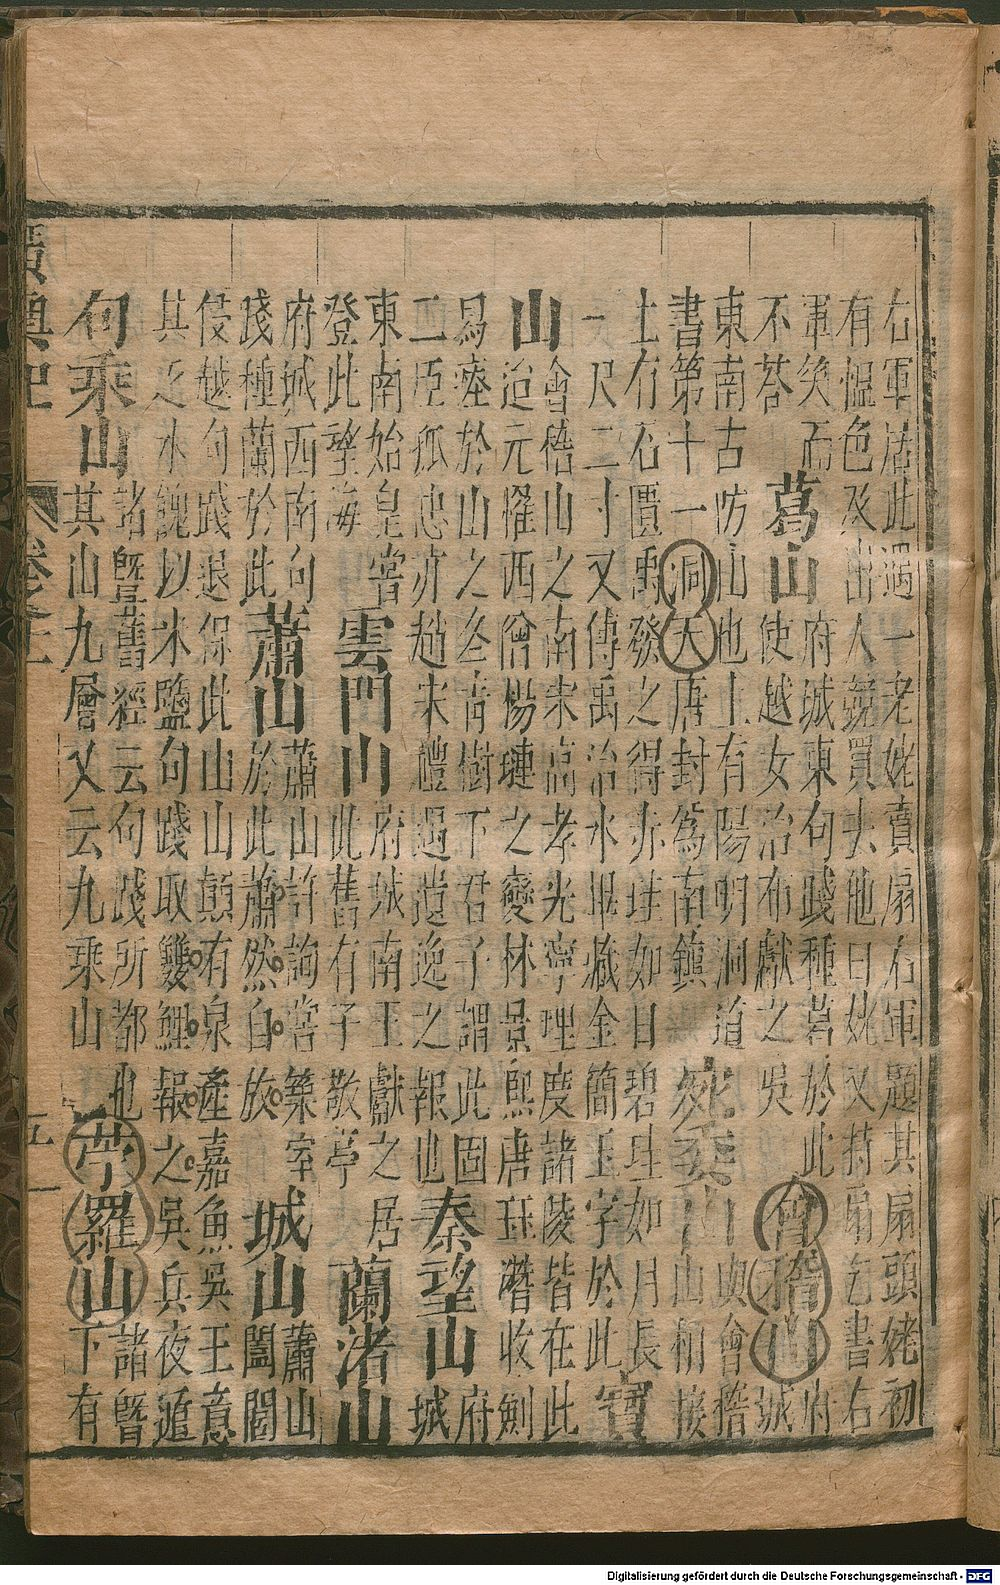 右軍居此遇一老姥賣扇右軍題其扇頭姥初
有慍色及出人競買去他日姥又持扇乞書右
軍笑而
不荅
葛山
府城東句踐種葛於此
使越女治布獻之吳
會稽山
府
城
東南古防山也上有陽明洞道
書第十一洞天唐封為南鎮
宛委山
與會稽
山相接
上有石匱禹發之得赤珪如日碧珪如月長
一尺二寸又傳禹治水畢藏金簡玉字於此
寶
山
會稽山之南宋高孝光寧理度諸陵皆在此
迨元罹西僧楊璉之變林景熙唐珏潛收劍
舄瘞於山之冬青樹下君子謂此固
二臣孤忠亦趙宋禮遇遺逸之報也
秦望山
府
城
東南始皇嘗
登此望海
雲門山
府城南王獻之居
此舊有子敬亭
蘭渚山
府城西南句
踐種蘭於此
蕭山
蕭山許詢嘗築室
於此蕭然自放
城山
蕭山
闔閭
侵越句踐退保此山山顛有泉產嘉魚吳王意
其乏水餽以米鹽句踐取雙鯉報之吳兵夜遁
句乘山
諸暨舊經云句踐所都也
其山九層又云九乘山
苧羅山
諸暨
下有
廣輿記
卷之十一
Digitalisierung gefördert durch die Deutsche Forschungsgemeinschaft - DFG